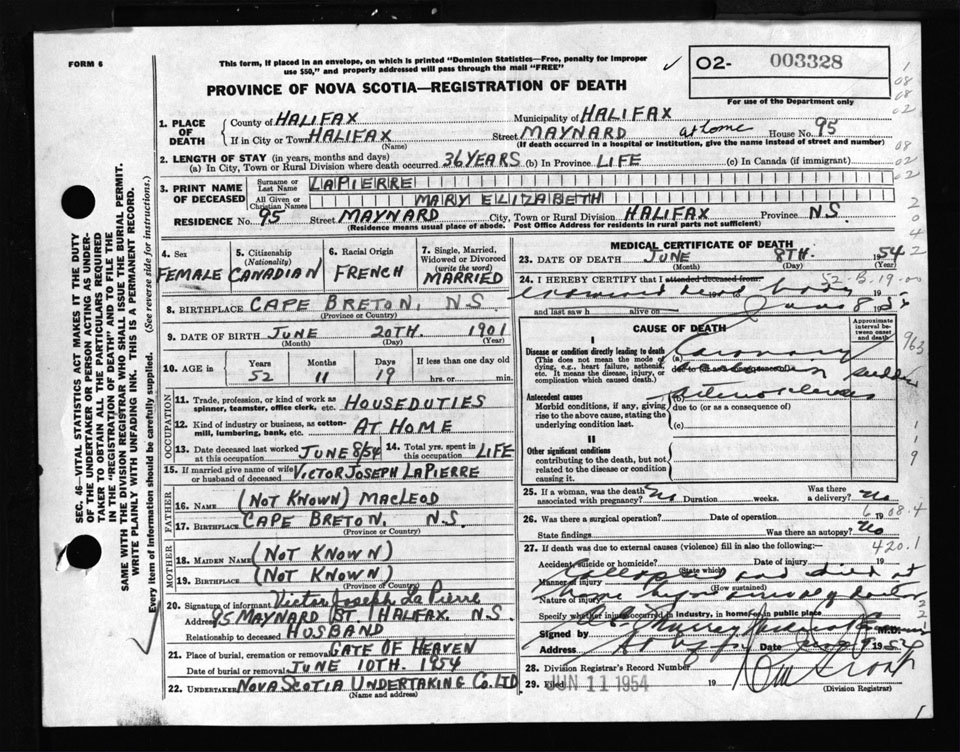 FORM 6
This form, if placed in an envelope, on which is printed "Dominion Statistics—Free, penalty for improper
use $50," and properly addressed will pass through the mail "FREE"
✓
02- 003328
For use of the Department only
PROVINCE OF NOVA SCOTIA—REGISTRATION OF DEATH
1. PLACE OF DEATH
County of HALIFAX Municipality of HALIFAX
If in City or Town HALIFAX Street MAYNARD at home House No. 95
(Name) (If death occurred in a hospital or institution, give the name instead of street and number)
2. LENGTH OF STAY (in years, months and days)
(a) In City, Town or Rural Division where death occurred 36 YEARS (b) In Province LIFE (c) In Canada (if immigrant)
3. PRINT NAME OF DECEASED
Surname or Last Name LAPIERRE
All Given or Christian Names MARY ELIZABETH
RESIDENCE No. 95 Street MAYNARD City, Town or Rural Division HALIFAX Province N.S.
(Residence means usual place of abode. Post Office Address for residents in rural parts not sufficient)
4. Sex FEMALE
5. Citizenship (Nationality) CANADIAN
6. Racial Origin FRENCH
7. Single, Married, Widowed or Divorced (write the word) MARRIED
8. BIRTHPLACE CAPE BRETON, N S
(Province or Country)
9. DATE OF BIRTH JUNE 20TH. 1901
(Month) (Day) (Year)
10. AGE in Years Months Days If less than one day old
52 11 19 hrs. or min.
OCCUPATION
11. Trade, profession, or kind of work as spinner, teamster, office clerk, etc. HOUSEDUTIES
12. Kind of industry or business, as cotton-mill, lumbering, bank, etc. AT HOME
13. Date deceased last worked at this occupation JUNE 8/54 14. Total yrs. spent in this occupation LIFE
15. If married give name of wife or husband of deceased VICTOR JOSEPH LAPIERRE
FATHER
16. NAME (NOT KNOWN) MACLEOD
17. BIRTHPLACE CAPE BRETON, N.S.
(Province or Country)
MOTHER
18. MAIDEN NAME (NOT KNOWN)
19. BIRTHPLACE (NOT KNOWN)
(Province of Country)
20. Signature of informant Victor Joseph LaPierre
Address 95 MAYNARD ST. HALIFAX N.S.
Relationship to deceased HUSBAND
21. Place of burial, cremation or removal GATE OF HEAVEN
Date of burial or removal JUNE 10TH. 1954
22. UNDERTAKER NOVA SCOTIA UNDERTAKING CO. LTD
(Name and address)
MEDICAL CERTIFICATE OF DEATH
23. DATE OF DEATH JUNE 8TH. 1954
(Month) (Day) (Year)
24. I HEREBY CERTIFY that I attended deceased from:
body 19
and last saw h alive on June 8
CAUSE OF DEATH
Approximate interval between onset and death
I
Disease or condition directly leading to death
(This does not mean the mode of dying, e.g., heart failure, asthenia, etc. It means the disease, injury, or complication which caused death.)
(a) Coronary
due to (or as a consequence of)
Antecedent causes
Morbid conditions, if any, giving rise to the above cause, stating the underlying condition last.
due to (or as a consequence of)
(c)
II
Other significant conditions
contributing to the death, but not related to the disease or condition causing it.
25. If a woman, was the death associated with pregnancy? No Duration weeks. Was there a delivery? No
26. Was there a surgical operation? Date of operation 19
State findings Was there an autopsy? No
27. If death was due to external causes (violence) fill in also the following:— 420.1
Accident, suicide or homicide? Date of injury 19
(State which)
Manner of injury Collapsed and died at
(How sustained)
Nature of injury home
Specify whether injury occurred in industry, in home or in public place
Signed by M.D.
Address Date 19 54
28. Division Registrar's Record Number
29. Filed JUN 11 1954 19
(Division Registrar)
SEC. 46—VITAL STATISTICS ACT MAKES IT THE DUTY
OF THE UNDERTAKER OR PERSON ACTING AS UNDER-
TAKER TO OBTAIN ALL THE PARTICULARS REQUIRED
IN THE "REGISTRATION OF DEATH" AND TO FILE THE
SAME WITH THE DIVISION REGISTRAR WHO SHALL ISSUE THE BURIAL PERMIT.
WRITE PLAINLY WITH UNFADING INK. THIS IS A PERMANENT RECORD.
Every item of information should be carefully supplied. (See reverse side for instructions.)